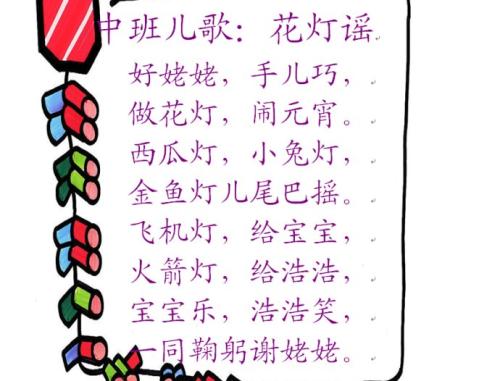 中班儿歌：花灯谣
好姥姥，手儿巧，
做花灯，闹元宵。
西瓜灯，小兔灯，
金鱼灯儿尾巴摇。
飞机灯，给宝宝，
火箭灯，给浩浩，
宝宝乐，浩浩笑，
一同鞠躬谢姥姥。